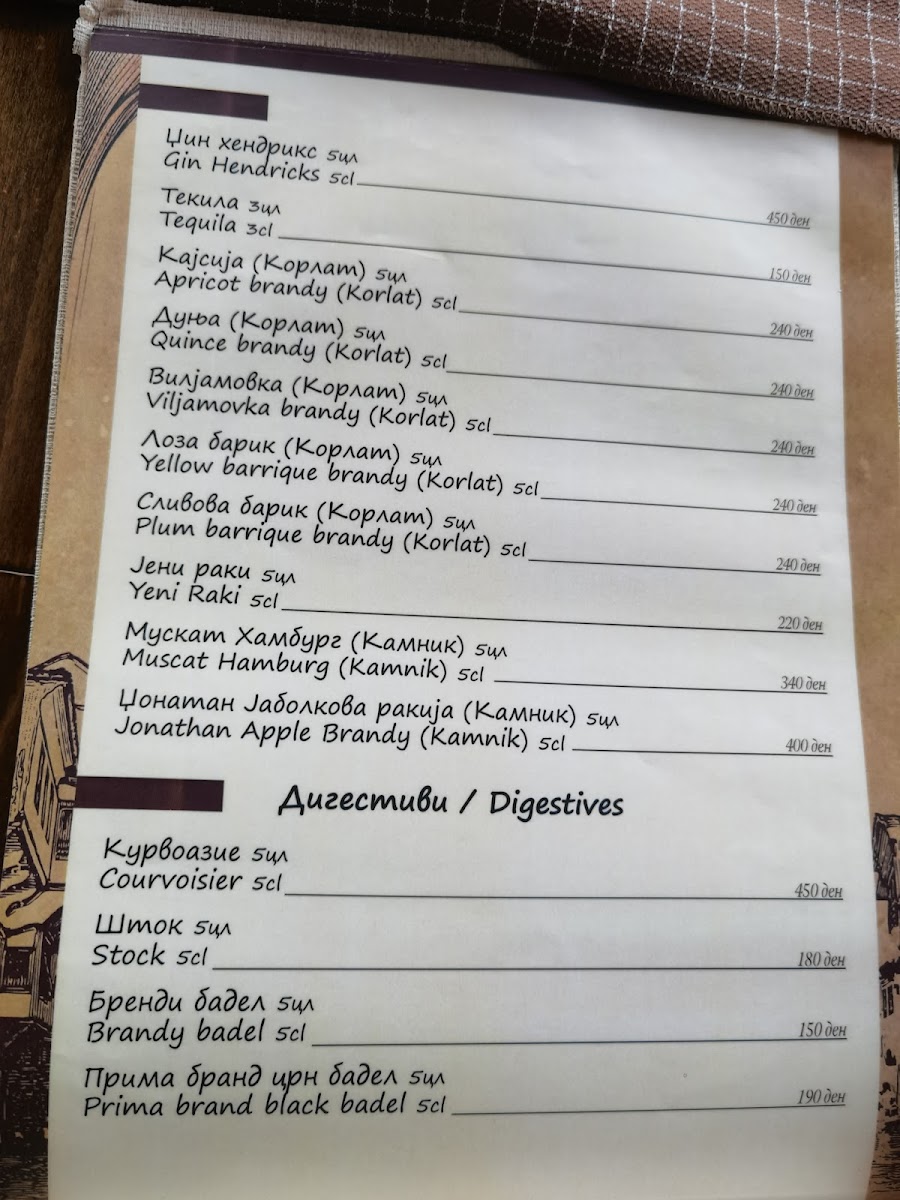 Џин хендрикс 5цл
Gin Hendricks 5cl 450 ден
Текила 3цл
Tequila 3cl 150 ден
Кајсија (Корлат) 5цл
Apricot brandy (Korlat) 5cl 240 ден
Дуња (Корлат) 5цл
Quince brandy (Korlat) 5cl 240 ден
Вилјамовка (Корлат) 5цл
Viljamovka brandy (Korlat) 5cl 240 ден
Лоза барик (Корлат) 5цл
Yellow barrique brandy (Korlat) 5cl 240 ден
Сливова барик (Корлат) 5цл
Plum barrique brandy (Korlat) 5cl 240 ден
Јени раки 5цл
Yeni Raki 5cl 220 ден
Мускат Хамбург (Камник) 5цл
Muscat Hamburg (Kamnik) 5cl 340 ден
Џонатан Јаболкова ракија (Камник) 5цл
Jonathan Apple Brandy (Kamnik) 5cl 400 ден
Дигестиви / Digestives
Курвоазие 5цл
Courvoisier 5cl 450 ден
Шток 5цл
Stock 5cl 180 ден
Бренди бадел 5цл
Brandy badel 5cl 150 ден
Прима бранд црн бадел 5цл
Prima brand black badel 5cl 190 ден